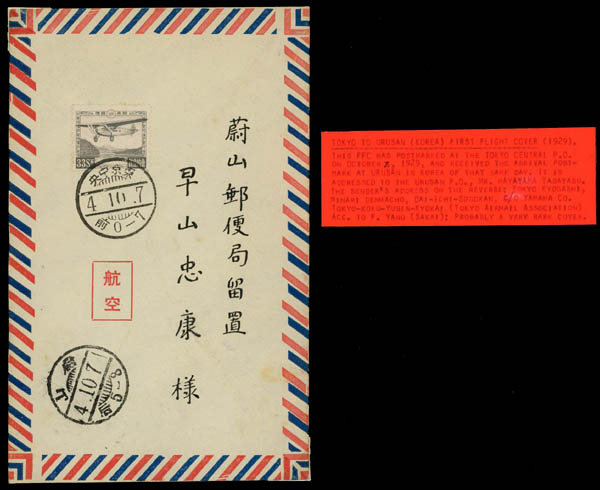 蔚山郵便局留置
早山忠康様
33SEN
4.10.7
前0-7
航空
蔚山
4.10.7
前5-8
TOKYO TO URUSAN (KOREA) FIRST FLIGHT COVER (1929).
THIS FFC WAS POSTMARKED AT THE TOKYO CENTRAL P.O.
ON OCTOBER 1929, AND RECEIVED THE ARRIVAL POST-
MARK AT URUSAN IN KOREA OF THAT SAME DAY. IT IS
ADDRESSED TO THE URUSAN P.O., MR. HAYAYAMA TADAYASU.
THE SENDER'S ADDRESS ON THE REVERSE: TOKYO KYOBASHI,
MINAMI DENMACHO, DAI-ICHI-SOGOKAN, C/O YAMAHA CO.
TOKYO-KOFU-YUBEN-KYOKAI (TOKYO AIRMAIL ASSOCIATION)
ACC. TO F. YANO (SAKAI): PROBABLY A VERY RARE COVER.